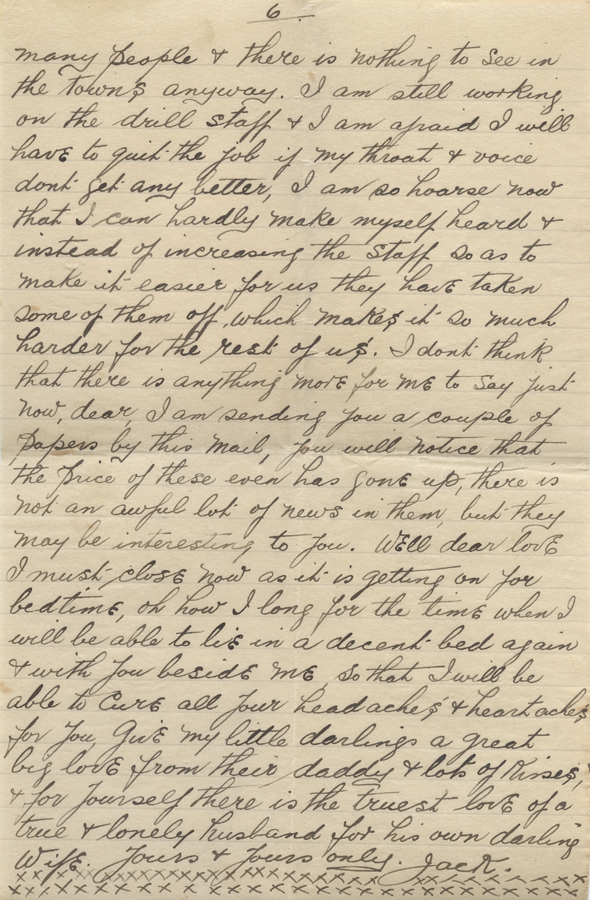 6.
many people & there is nothing to see in
the towns anyway. I am still working
on the drill staff & I am afraid I will
have to quit the job if my throat & voice
dont get any better, I am so hoarse now
that I can hardly make myself heard &
instead of increasing the staff so as to
make it easier for us they have taken
some of them off, which makes it so much
harder for the rest of us. I dont think
that there is anything more for me to say just
now, dear, I am sending you a couple of
papers by this mail, you will notice that
the price of these even has gone up, there is
not an awful lot of news in them, but they
may be interesting to you. Well dear love
I must close now as it is getting on for
bedtime, oh how I long for the time when I
will be able to lie in a decent bed again
& with you beside me, so that I will be
able to cure all your headaches & heartaches
for you, Give my little darlings a great
big love from their daddy & lots of kisses,
& for yourself there is the truest love of a
true & lonely husband for his own darling
Wife. Yours & Yours only. Jack.
xxxxxxxxxxxxxxxxxxxxxxxxxxxxxx
xxxxxxxxxxxxxxxxxxxxxxxxxxxxxx